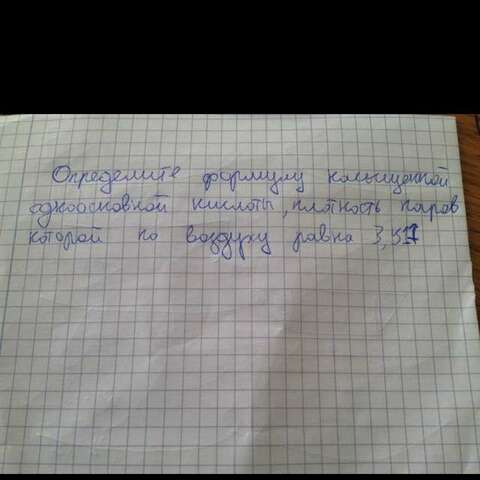 Определите формулу насыщенной
одноосновной кислоты, плотность паров
которой по воздуху равна 3,517